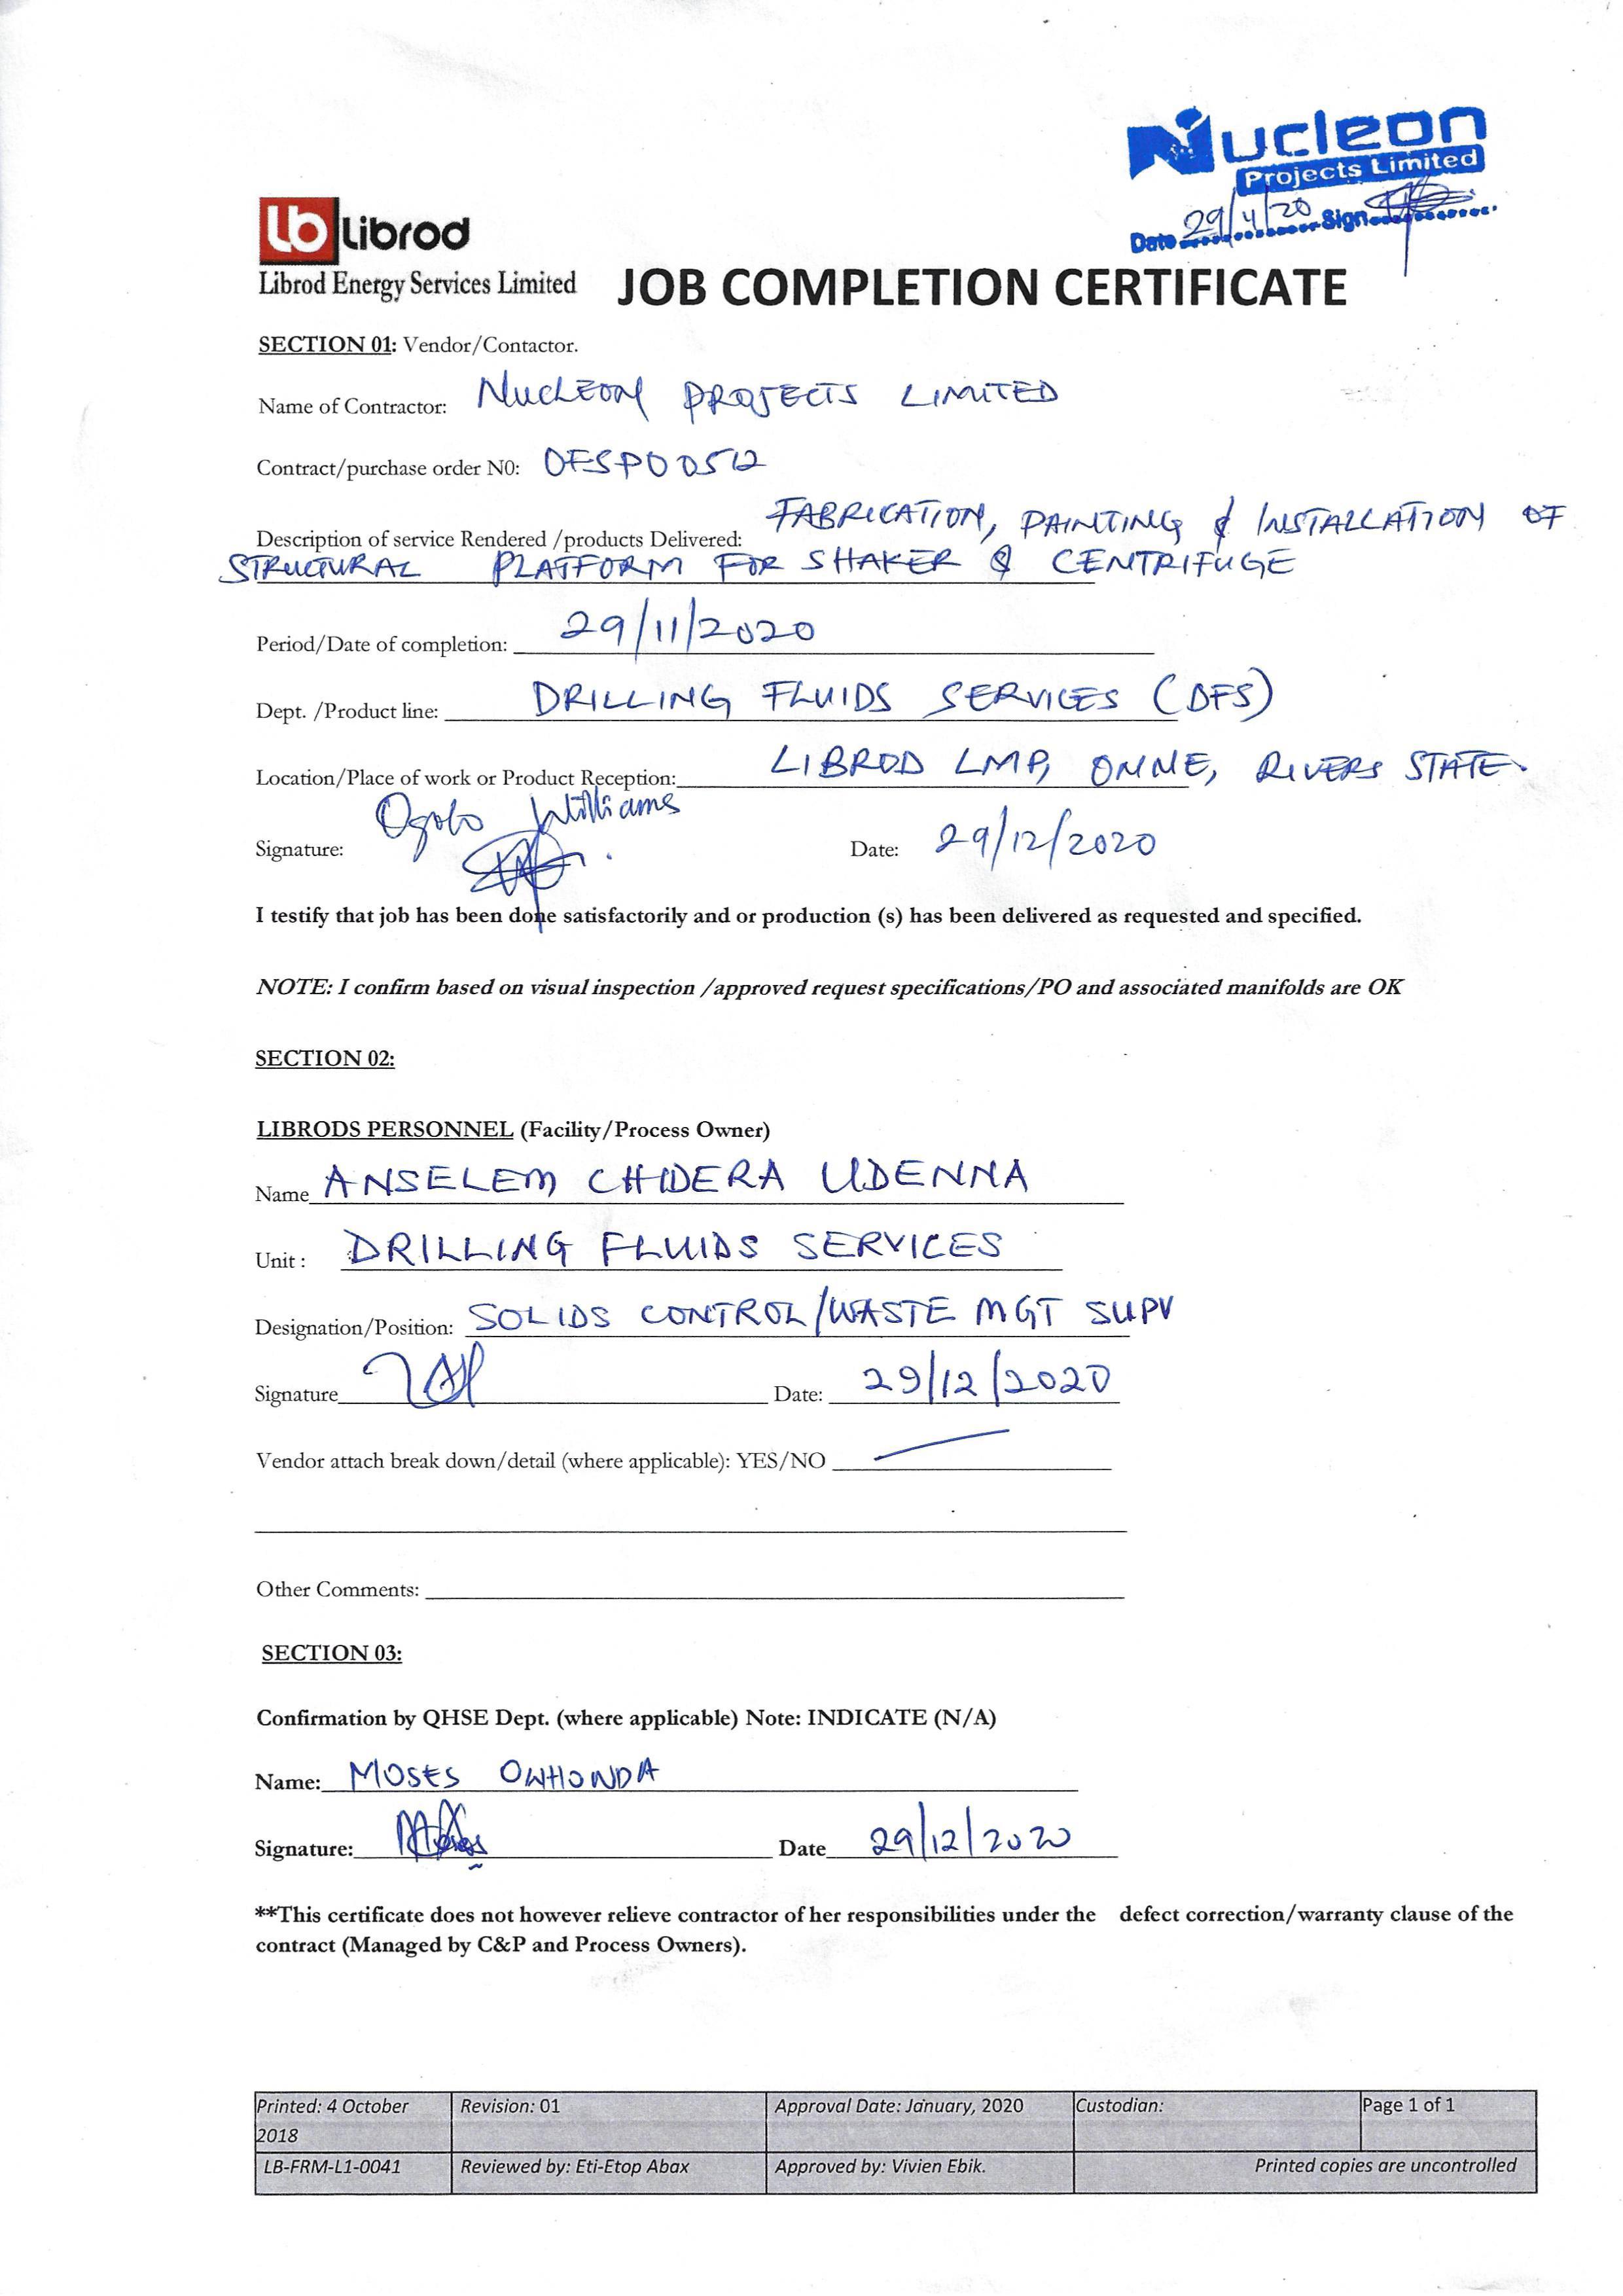 Nucleon
Projects Limited
Date 29/4/20 Sign
lb Librod
Librod Energy Services Limited JOB COMPLETION CERTIFICATE
SECTION 01: Vendor/Contactor.
Name of Contractor: NUCLEON PROJECTS LIMITED
Contract/purchase order N0: OFSPO0512
Description of service Rendered /products Delivered: FABRICATION, PAINTING & INSTALLATION OF
STRUCTURAL PLATFORM FOR SHAKER & CENTRIFUGE
Period/Date of completion: 29/11/2020
Dept. /Product line: DRILLING FLUIDS SERVICES (DFS)
Location/Place of work or Product Reception: LIBROD LMP, ONNE, RIVERS STATE.
Signature: Ogolo Williams Date: 29/12/2020
I testify that job has been done satisfactorily and or production (s) has been delivered as requested and specified.
NOTE: I confirm based on visual inspection /approved request specifications/PO and associated manifolds are OK
SECTION 02:
LIBRODS PERSONNEL (Facility/Process Owner)
Name ANSELEM CHIDERA UDENNA
Unit : DRILLING FLUIDS SERVICES
Designation/Position: SOLIDS CONTROL/WASTE MGT SUPV
Signature Date: 29/12/2020
Vendor attach break down/detail (where applicable): YES/NO
Other Comments:
SECTION 03:
Confirmation by QHSE Dept. (where applicable) Note: INDICATE (N/A)
Name: MOSES OWHONDA
Signature: Date 29/12/2020
**This certificate does not however relieve contractor of her responsibilities under the defect correction/warranty clause of the
contract (Managed by C&P and Process Owners).
Printed: 4 October 2018 Revision: 01 Approval Date: January, 2020 Custodian: Page 1 of 1
LB-FRM-L1-0041 Reviewed by: Eti-Etop Abax Approved by: Vivien Ebik. Printed copies are uncontrolled